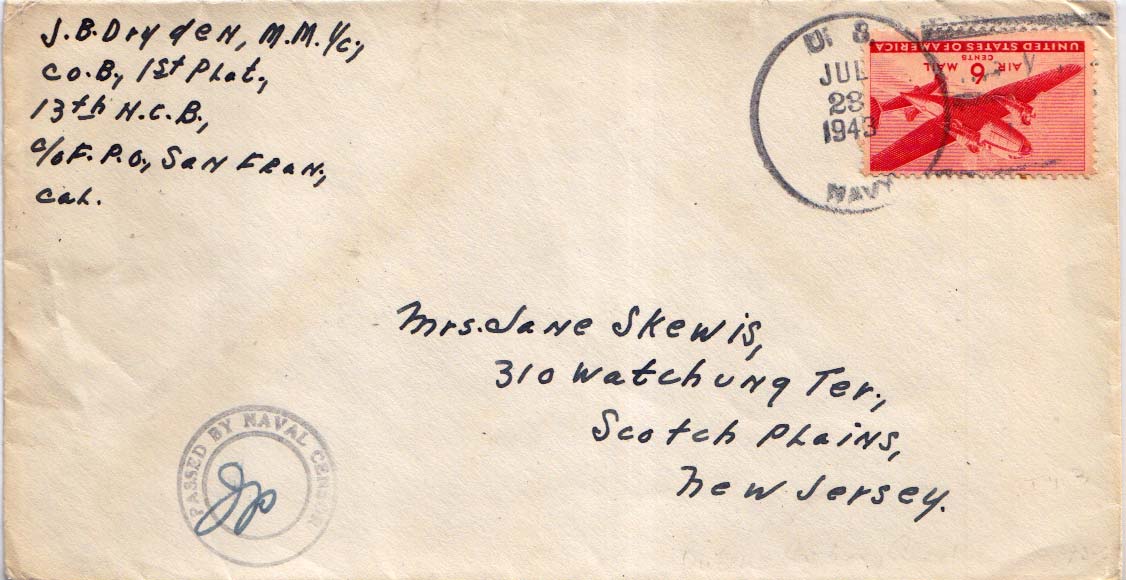 J.B. Dryden, M.M. 1/c,
Co. B, 1st Plat,
13th N.C.B.,
c/o F.P.O., San Fran,
Cal.
U. S.
JUL
23
1943
NAVY
UNITED STATES OF AMERICA
CENTS
6
AIR MAIL
Mrs. Jane Skewis,
310 Watchung Ter.,
Scotch Plains,
New Jersey.
PASSED BY NAVAL CENSOR